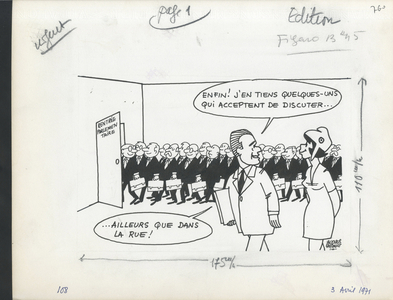 urgent
page 1
Edition
Figaro 13 c 5
760
ENFIN! J'EN TIENS QUELQUES-UNS
QUI ACCEPTENT DE DISCUTER...
RENTRÉE
PARLEMEN
TAIRE
...AILLEURS QUE DANS
LA RUE!
108
3 Avril 1971